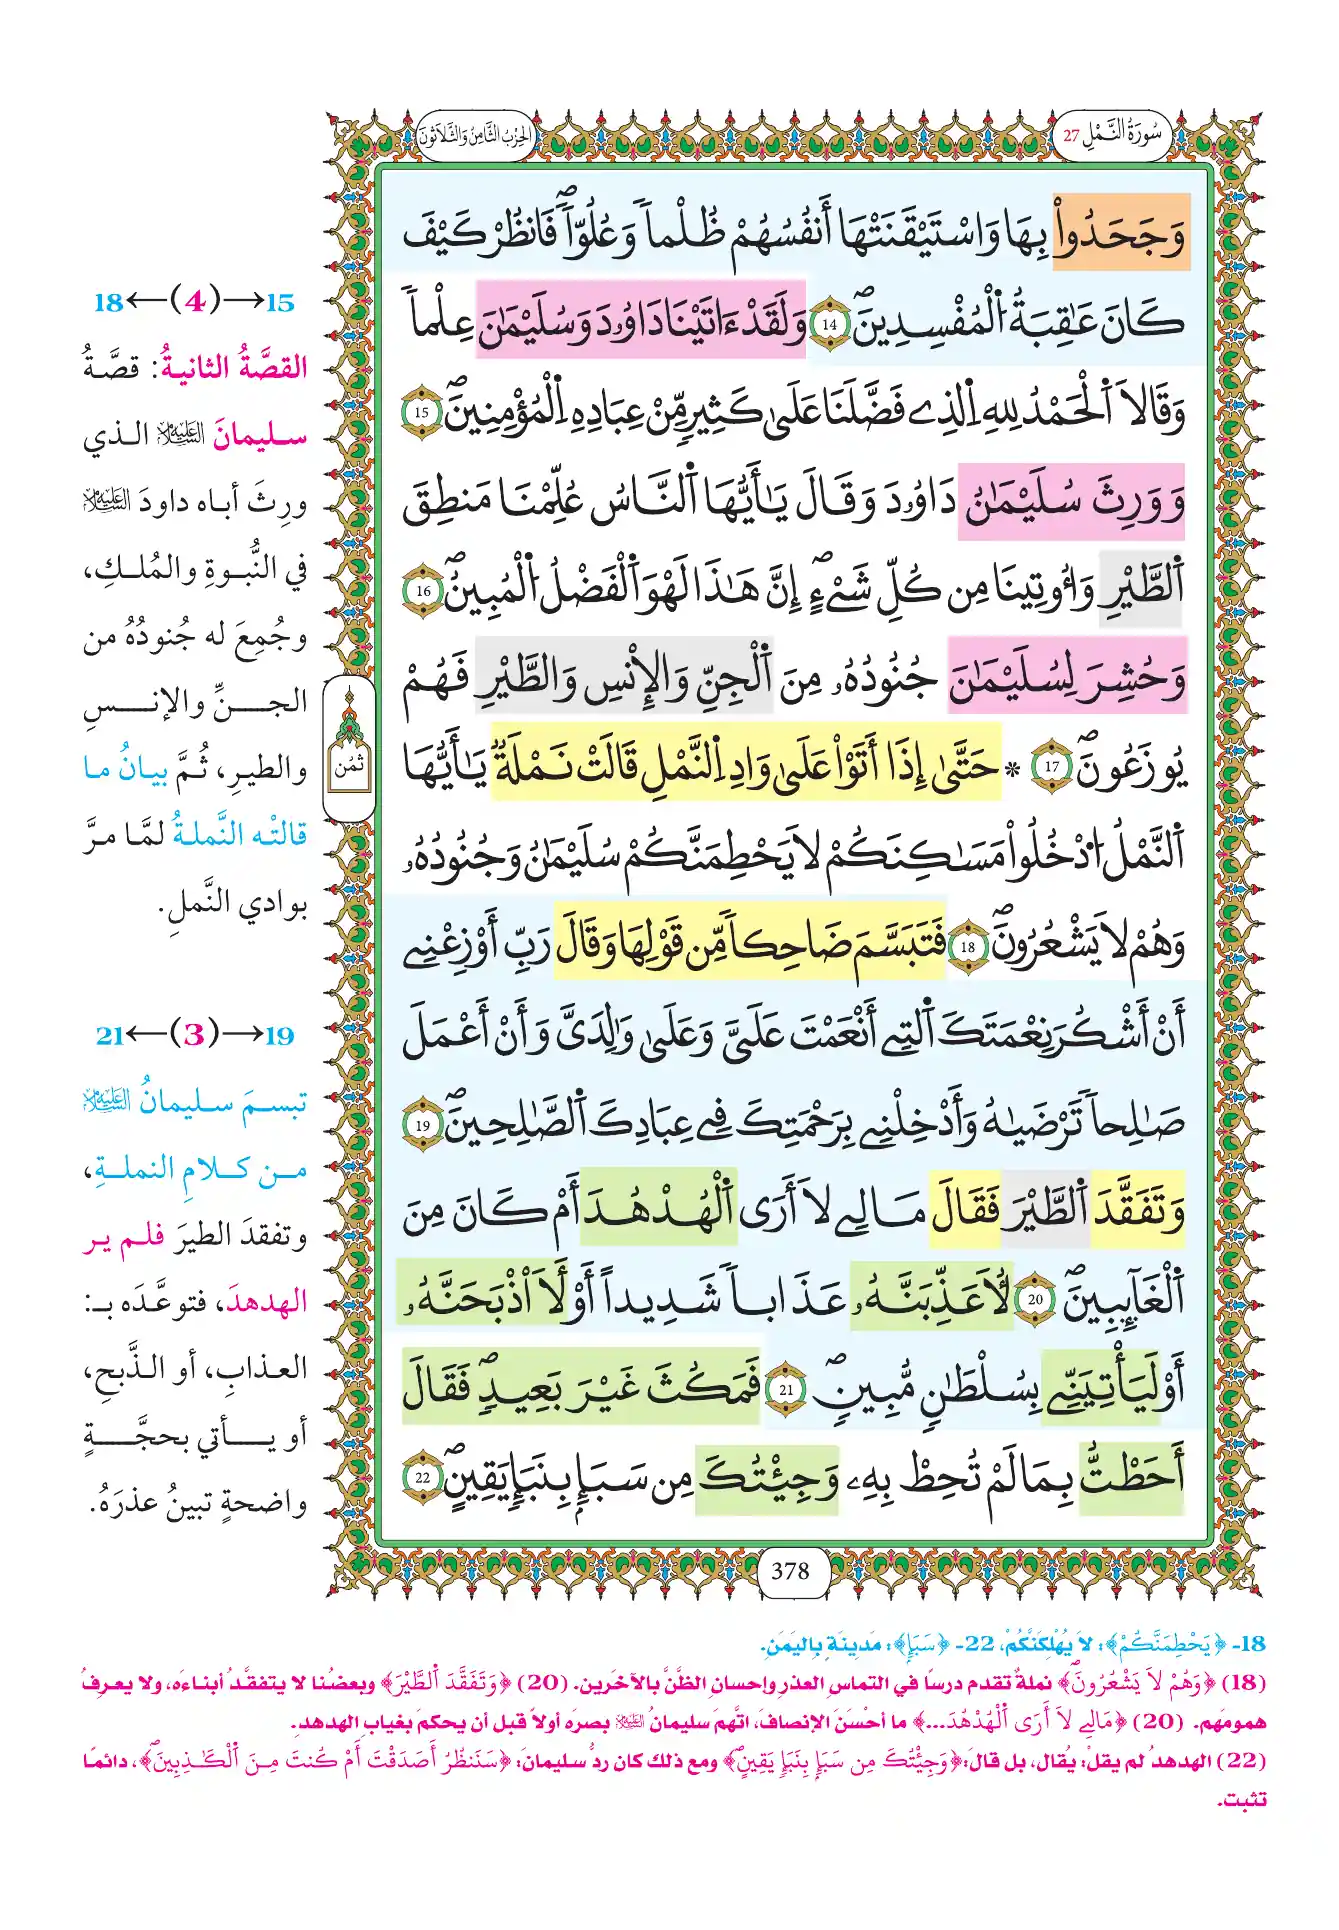 سُورَةُ النَّمْلِ 27
الحِزْبُ الثَّامِنُ وَالثَّلَاثُونَ
وَجَحَدُواْ بِهَا وَاسْتَيْقَنَتْهَا أَنفُسُهُمْ ظُلْماً وَعُلُوّاًۖ فَانظُرْ كَيْفَ
كَانَ عَٰقِبَةُ اُ۬لْمُفْسِدِينَۖ 14 وَلَقَدْ ءَاتَيْنَا دَاوُۥدَ وَسُلَيْمَٰنَ عِلْماً
وَقَالَا اَ۬لْحَمْدُ لِلهِ اِ۬لذِے فَضَّلَنَا عَلَىٰ كَثِيرٍ مِّنْ عِبَادِهِ اِ۬لْمُؤْمِنِينَۖ 15
وَوَرِثَ سُلَيْمَٰنُ دَاوُۥدَ وَقَالَ يَٰأَيُّهَا اَ۬لنَّاسُ عُلِّمْنَا مَنطِقَ
اَ۬لطَّيْرِ وَأُوتِينَا مِن كُلِّ شَےْءٍۖ إِنَّ هَٰذَا لَهْوَ اَ۬لْفَضْلُ اُ۬لْمُبِينُۖ 16
وَحُشِرَ لِسُلَيْمَٰنَ جُنُودُهُۥ مِنَ اَ۬لْجِنِّ وَالْإِنْسِ وَالطَّيْرِ فَهُمْ
يُوزَعُونَۖ 17 * حَتَّىٰ إِذَا أَتَوْاْ عَلَىٰ وَادِ اِ۬لنَّمْلِ قَالَتْ نَمْلَةٌ يَٰأَيُّهَا
اَ۬لنَّمْلُ اُ۟دْخُلُواْ مَسَٰكِنَكُمْ لَا يَحْطِمَنَّكُمْ سُلَيْمَٰنُ وَجُنُودُهُۥ
وَهُمْ لَا يَشْعُرُونَۖ 18 فَتَبَسَّمَ ضَاحِكاً مِّن قَوْلِهَا وَقَالَ رَبِّ أَوْزِعْنِے
أَنْ أَشْكُرَ نِعْمَتَكَ اَ۬لتِے أَنْعَمْتَ عَلَيَّ وَعَلَىٰ وَٰلِدَيَّ وَأَنْ أَعْمَلَ
صَٰلِحاً تَرْضَيٰهُ وَأَدْخِلْنِے بِرَحْمَتِكَ فِے عِبَادِكَ اَ۬لصَّٰلِحِينَۖ 19
وَتَفَقَّدَ اَ۬لطَّيْرَ فَقَالَ مَالِے لَا أَرَى اَ۬لْهُدْهُدَ أَمْ كَانَ مِنَ
اَ۬لْغَآئِبِينَۖ 20 لَأُعَذِّبَنَّهُۥ عَذَاباً شَدِيداً أَوْ لَأَاْذْبَحَنَّهُۥ
أَوْ لَيَأْتِيَنِّے بِسُلْطَٰنٍ مُّبِينٍۖ 21 فَمَكُثَ غَيْرَ بَعِيدٍۖ فَقَالَ
أَحَطتُّ بِمَا لَمْ تُحِطْ بِهِۦ وَجِئْتُكَ مِن سَبَإٍ بِنَبَإٍ يَقِينٍۖ 22
ثُمُن
15→(4)←18
القصَّةُ الثانيةُ: قصَّةُ
سليمانَ عليه السلام الذي
ورِثَ أباه داودَ عليه السلام
في النُّبوةِ والمُلكِ،
وجُمِعَ له جُنودُهُ من
الجنِّ والإنسِ
والطيرِ، ثُمَّ بيانُ ما
قالتْه النَّملةُ لمَّا مرَّ
بوادي النَّملِ.
19→(3)←21
تبسمَ سليمانُ عليه السلام
من كلامِ النملةِ،
وتفقدَ الطيرَ فلم ير
الهدهدَ، فتوعَّدَه بـ:
العذابِ، أو الذَّبحِ،
أو يأتي بحجَّةٍ
واضحةٍ تبينُ عذرَهُ.
378
18- ﴿يَحْطِمَنَّكُمْ﴾: لَا يُهْلِكَنَّكُمْ، 22- ﴿سَبَإٍ﴾: مَدِينَةٍ بِاليَمَنِ.
(18) ﴿وَهُمْ لَا يَشْعُرُونَۖ﴾ نملةٌ تقدم درسًا في التماسِ العذرِ وإحسانِ الظَّنِّ بالآخَرين. (20) ﴿وَتَفَقَّدَ اَ۬لطَّيْرَ﴾ وبعضُنا لا يتفقدُ أبناءَه، ولا يعرفُ
همومَهم. (20) ﴿مَالِے لَا أَرَى اَ۬لْهُدْهُدَ...﴾ ما أحْسَنَ الإنصافَ، اتَّهمَ سليمانُ عليه السلام بصرَه أولًا قبل أن يحكمَ بغيابِ الهدهدِ.
(22) الهدهدُ لم يقلْ: يُقال، بل قالَ: ﴿وَجِئْتُكَ مِن سَبَإٍ بِنَبَإٍ يَقِينٍۖ﴾ ومع ذلك كان ردُّ سليمانَ: ﴿سَنَنظُرُ أَصَدَقْتَ أَمْ كُنتَ مِنَ اَ۬لْكَٰذِبِينَۖ﴾، دائمًا
تثبت.